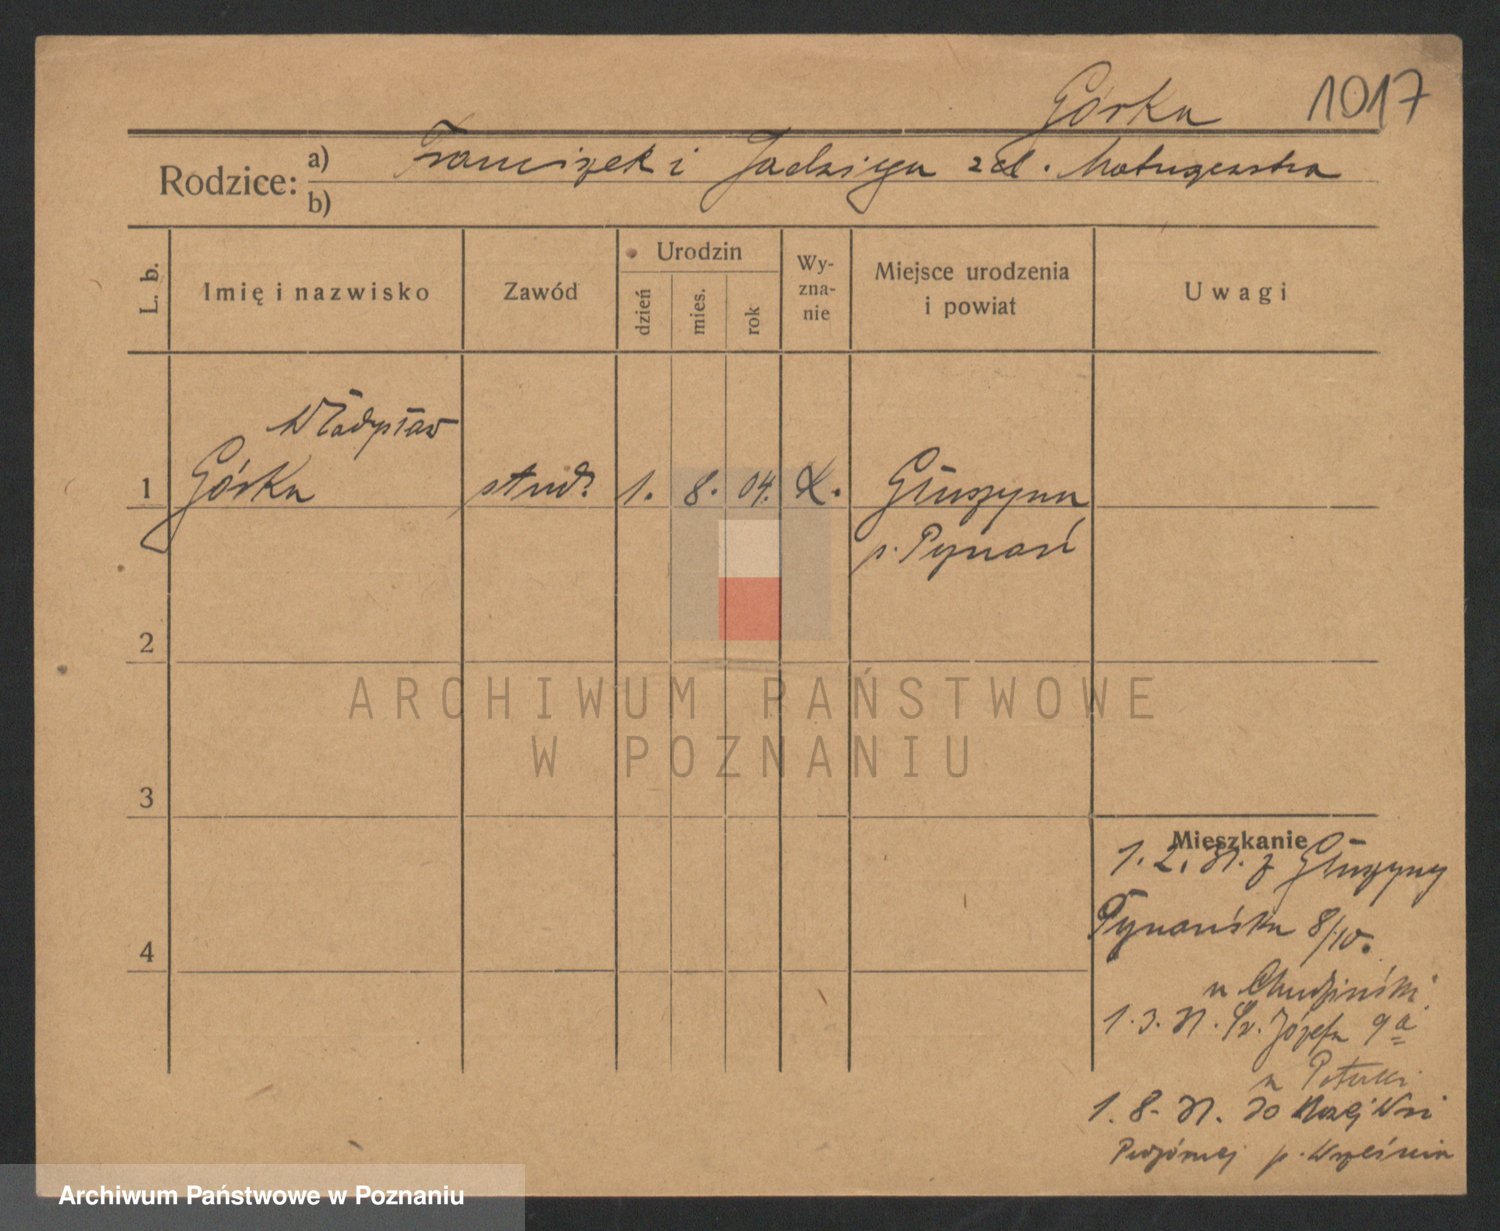 Górka 1017
Rodzice: a) Franciszek i Jadwiga z d.
b)
L. b. Imię i nazwisko Zawód Urodzin dzień mies. rok Wyznanie Miejsce urodzenia i powiat Uwagi
Władysław
1 Górka stud. 1. 8. 04. K. Głuszyna
p. Poznań
2
ARCHIWUM PAŃSTWOWE
W POZNANIU
3
Mieszkanie
1. 2. 31. z Głuszyny
Poznańska 8/10.
4
u Chudziński
1. 3. 31. Św. Józefa 9a
u
1. 8. 31. do Wsi
p. Września
Archiwum Państwowe w Poznaniu